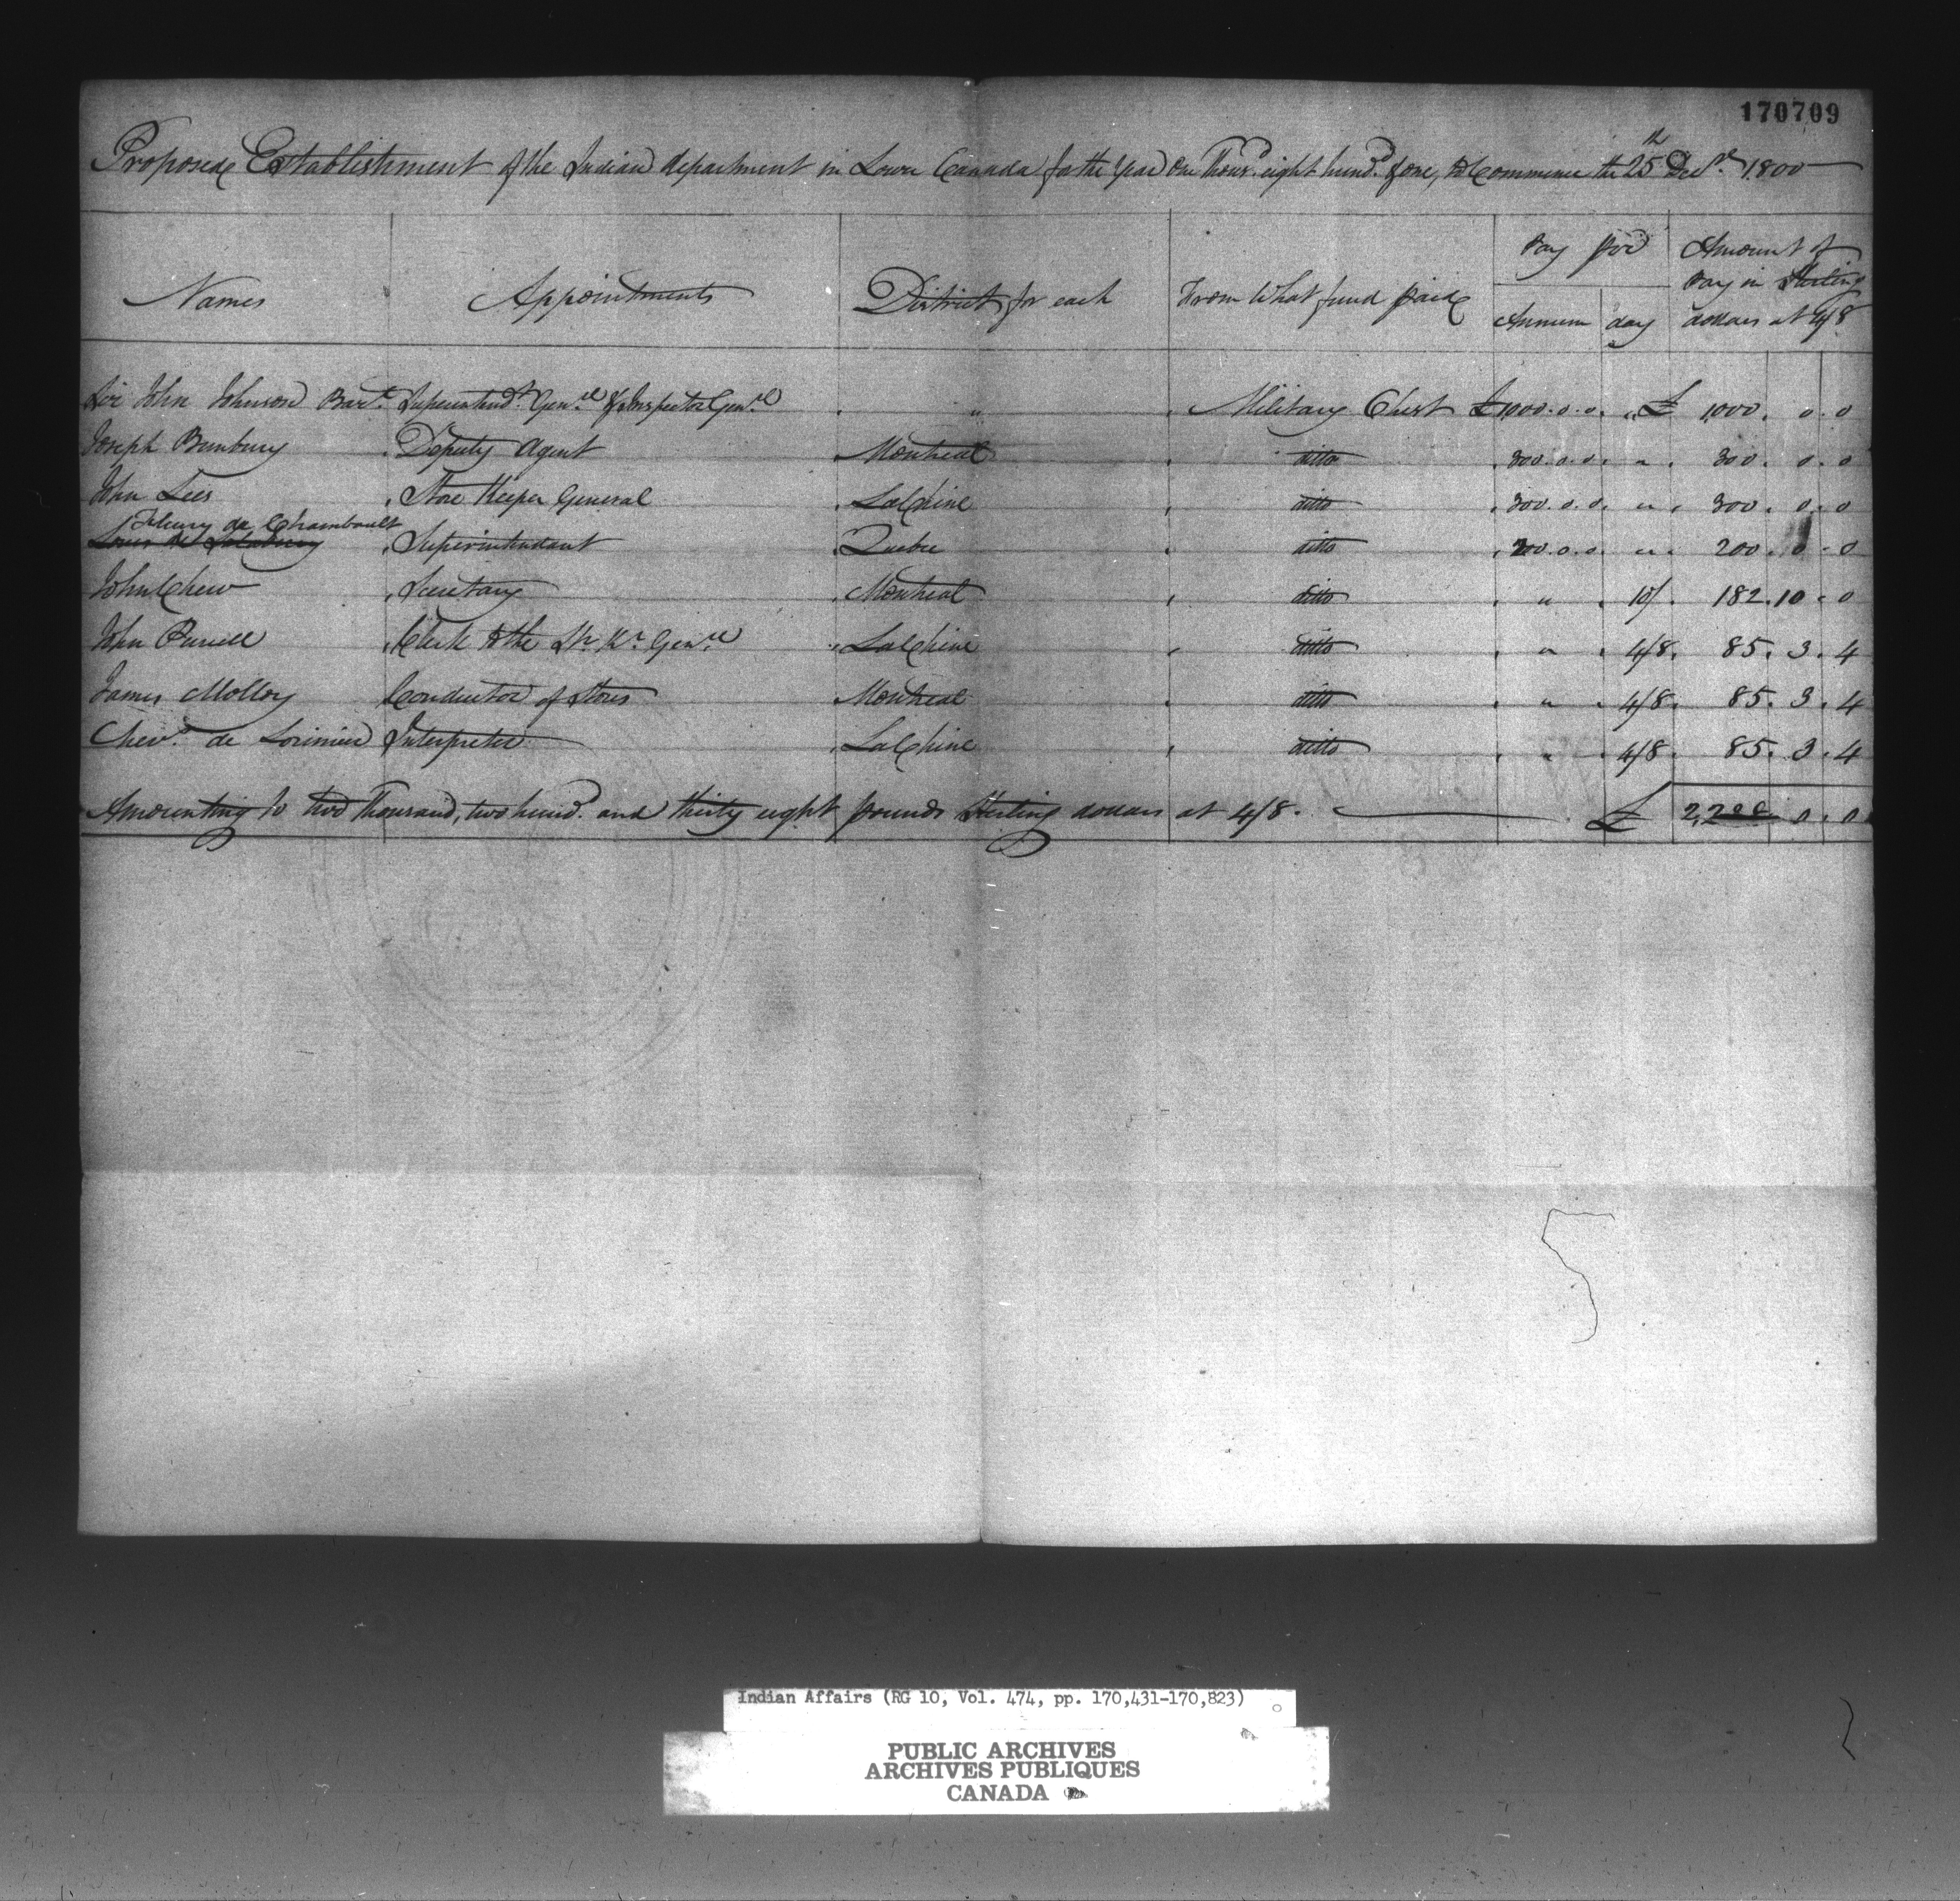 170709
Proposed Establishment of the Indian department in Lower Canada for the Year One Thous.d eight hund.d & one, to Commence the 25th Decr. 1800
Names Appointments District for each From What fund paid Pay per Annum day Amount of Pay in Sterling dollars at 4/8
Sir John Johnson Bart. Superintendt. Genel. & Inspector Genel. " Military Chest £1000.0.0. " £ 1000. 0. 0
Joseph Bunbury Deputy Agent Montreal ditto 300.0.0. " 300. 0. 0
John Lees Store Keeper General LaChine ditto 300.0.0. " 300. 0. 0
Fleury de Chambault
Louis de Salabery Superintendant Quebec ditto 200.0.0. " 200. 0. 0
John Chew Secretary Montreal ditto " 10/. 182.10.0
John Pursell Clerk to the Sr. Kr. Genel. LaChine ditto " 4/8. 85. 3. 4
James Molloy Conductor of Stores Montreal ditto " 4/8. 85. 3. 4
Chevr. de Lorimier Interpreter LaChine ditto " 4/8. 85. 3. 4
Amounting to two Thousand, two hund.d and thirty eight pounds Sterling dollars at 4/8. £ 0. 0
Indian Affairs (RG 10, Vol. 474, pp. 170,431-170,823)
PUBLIC ARCHIVES
ARCHIVES PUBLIQUES
CANADA